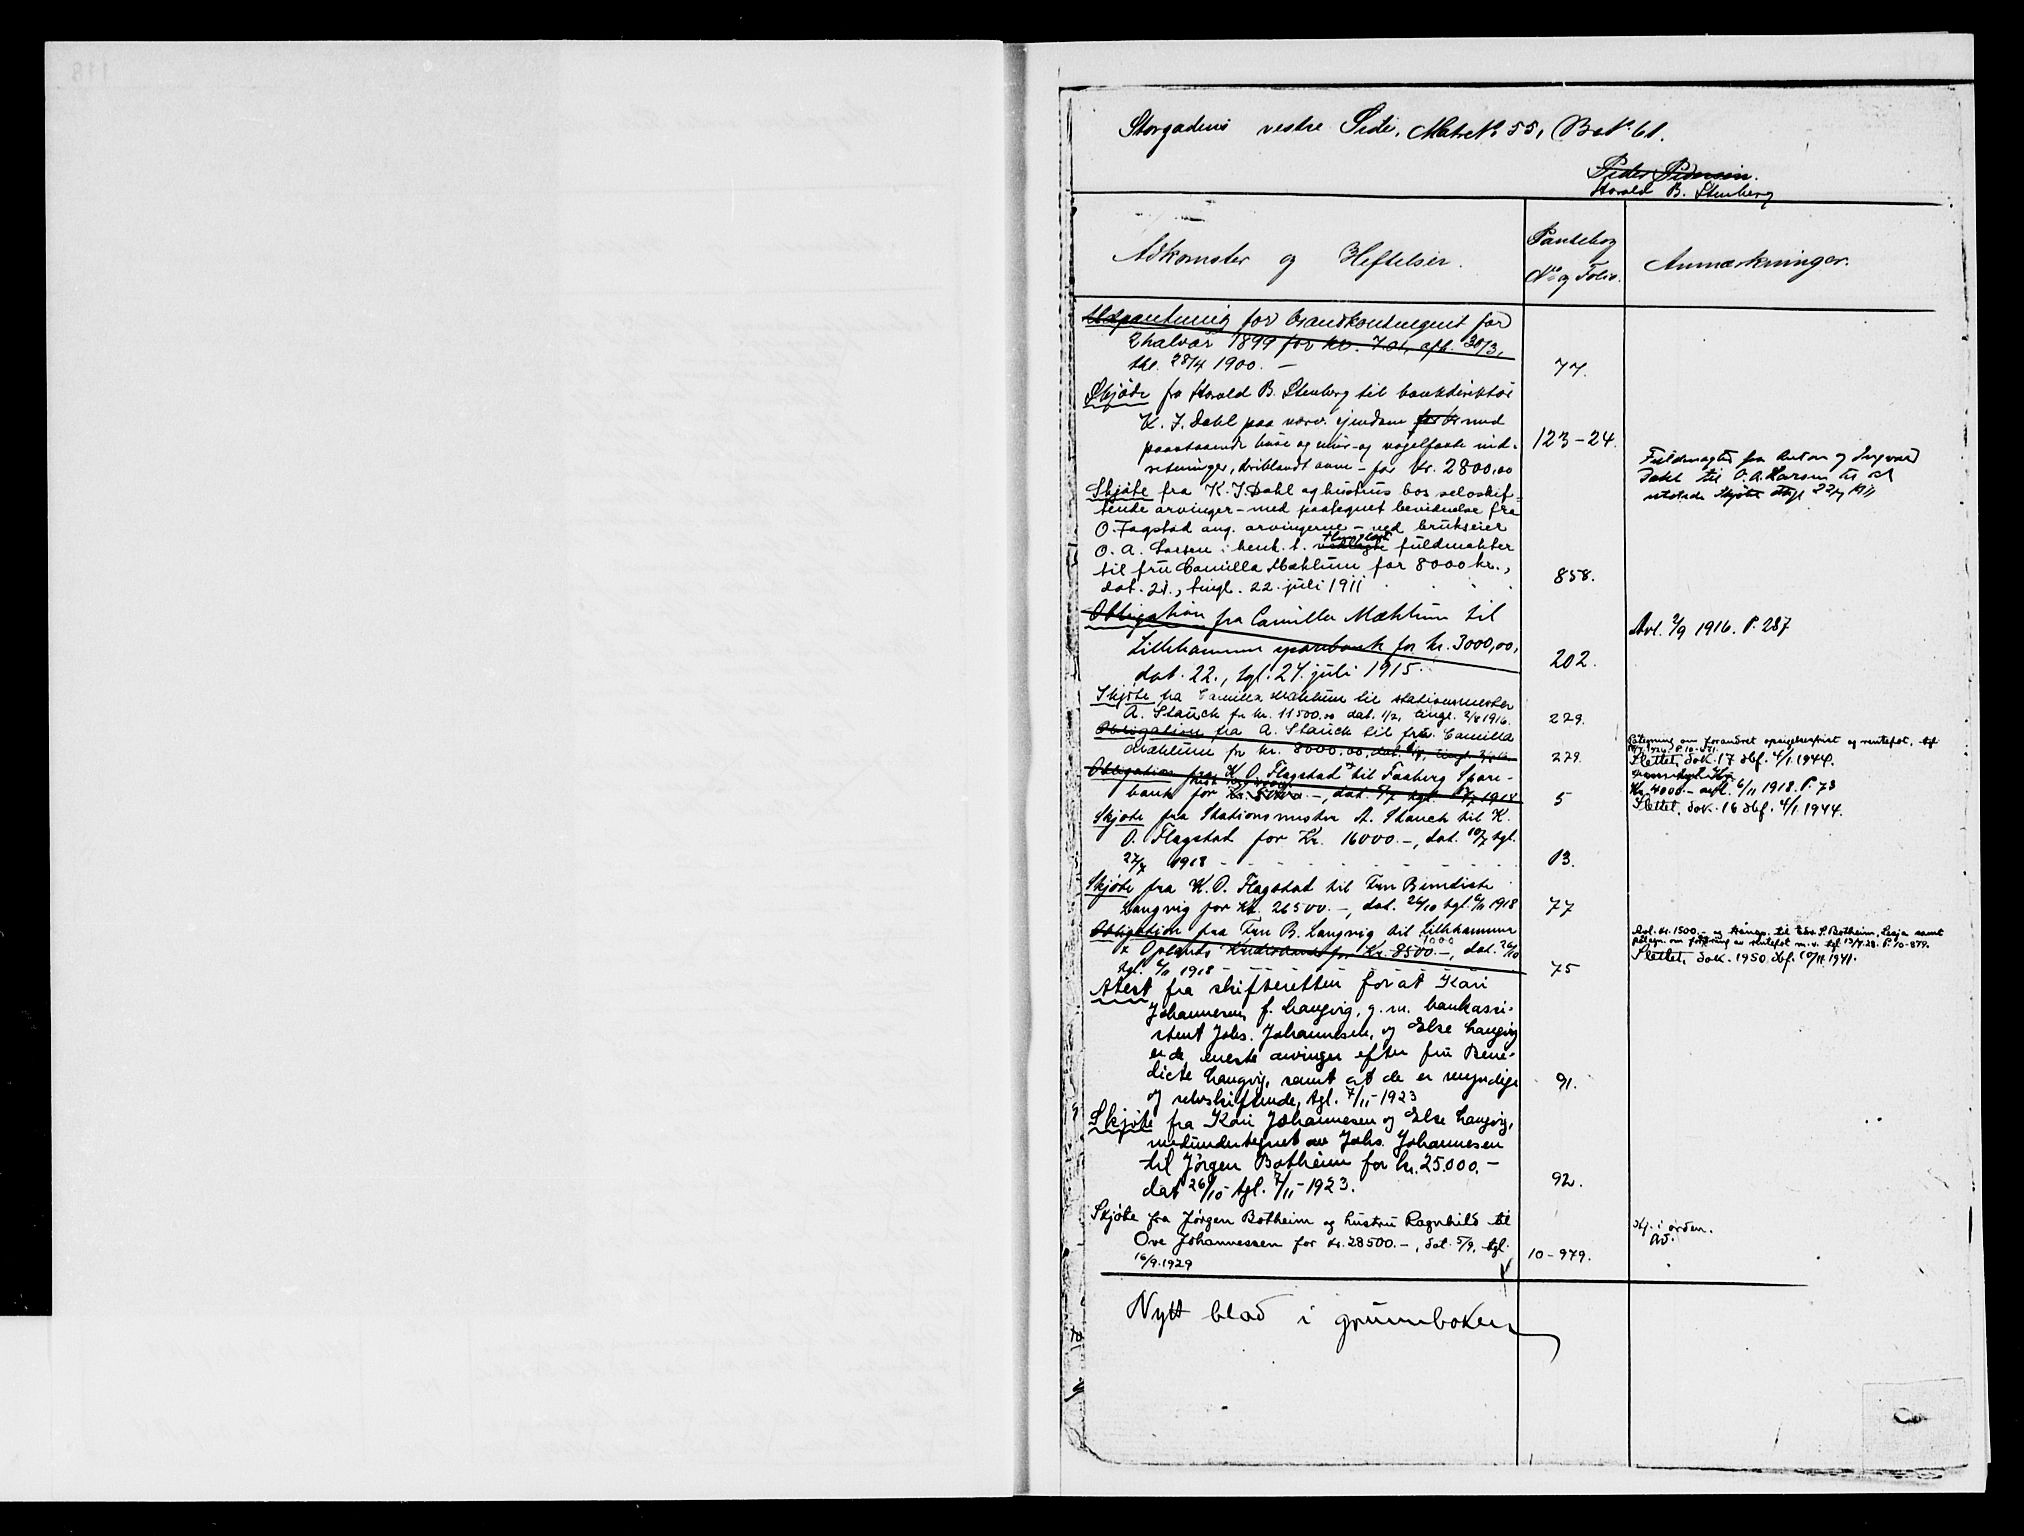 Storgadens vestre Side, Matr. No 55, B. No 61.
Peder Pedersen.
Harald B. Stenberg
Adkomster og Heftelser.
Pantebog
No og Folio.
Anmærkninger.
Udpantning for brandkontingent for
2 halvår 1899 for kr. 7.01, afh. 30/3,
thl. 28/4 1900. —
77.
Skjøde fra Harald B. Stenberg til bankdirektør
K. J. Dahl paa nærv. ejendom for kr med
paastaaende huse og mur- og nagelfaste ind-
retninger, deriblandt ovne - for kr. 2800,00
123-24.
Skjøte fra K. J. Dahl og hustrus bos selvskif-
tende arvinger - med paategnet bevidnelse fra
O. Fagstad ang. arvingerne - ved brukseier
O. A. Larsen i henh. t. vedlagte fuldmakter
til fru Camilla Mæhlum for 8000 kr.,
dat. 21., tingl. 22. juli 1911
858.
Fuldmagter fra Anton og Ingvard
Dahl til O. A. Larsen til at
utstede skjøte tgl 22/7 1911
Obligation fra Camilla Mæhlum til
Lillehammer sparebank for kr. 3000,00,
dat. 22., tgl. 24. juli 1915.
202.
Avl. 2/9 1916. P. 287
Skjøte fra Camilla Mæhlum til stationsmester
A. Stauch for kr. 11500,00 dat. 1/2, tingl. 2/8 1916.
279.
Obligation fra A. Stauch til fru Camilla
Mæhlum for kr. 8000,00, dat.
279.
Påtegning om forandret opsigelsesfrist og rentefot, tgl
Slettet, dok. 17 dbf. 4/1 1944.
Obligation fra K. O. Flagstad til Faaberg Spare-
bank for Kr. —, dat. tgl. 1918
5
Kr. 4000.- avl. 6/11 1918. P. 73
Slettet, dok. 16 dbf. 4/1 1944.
Skjøte fra Stationsmester A. Stauch til K.
O. Flagstad for Kr. 16000.-, dat. 10/7 tgl.
27/7 1918
13.
Skjøte fra K. O. Flagstad til Fru Benedicte
Langvig for Kr. 26500.-, dat. 26/10 tgl. 6/11 1918
77
Obligation fra Fru B. Langvig til Lillehammer
& Oplands Kreditbank for Kr. 8500.-, dat. 26/10
tgl. 6/11 1918
75
Avl. kr. 1500.- og transp. til Edv. P. Botheim, Lesja samt
påtegn. om forhøining av rentefot m.v. tgl 13/7.28. P. 10-879.
Slettet, dok. 1950 dbf. 10/11.1941.
Atest fra skifteretten for at Kari
Johannesen, f. Langvig, g. m. bankassi-
stent Johs. Johannesen, og Else Langvig
er de eneste arvinger efter fru Bene-
dicte Langvig, samt at de er myndige
og selvskiftende, tgl. 7/11-1923
91.
Skjøte fra Kari Johannesen og Else Langvig,
medundertegnet av Johs. Johannesen
til Jørgen Botheim for kr. 25.000.-
dat 26/10 tgl. 7/11-1923.
92.
Skjøte fra Jørgen Botheim og hustru Ragnhild til
Ove Johannessen for kr. 28500.-, dat. 5/9, tgl.
16/9.1929
10-979.
Hj. i orden.
Nytt blad i grunnboken